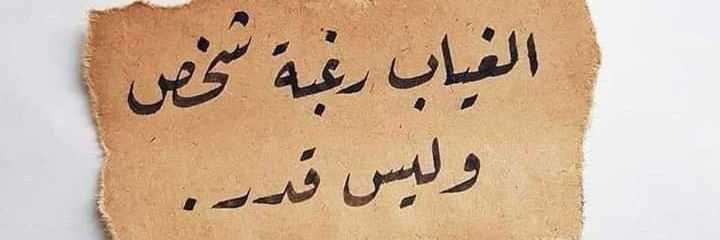 الغياب رغبة شخص
وليس قدر.